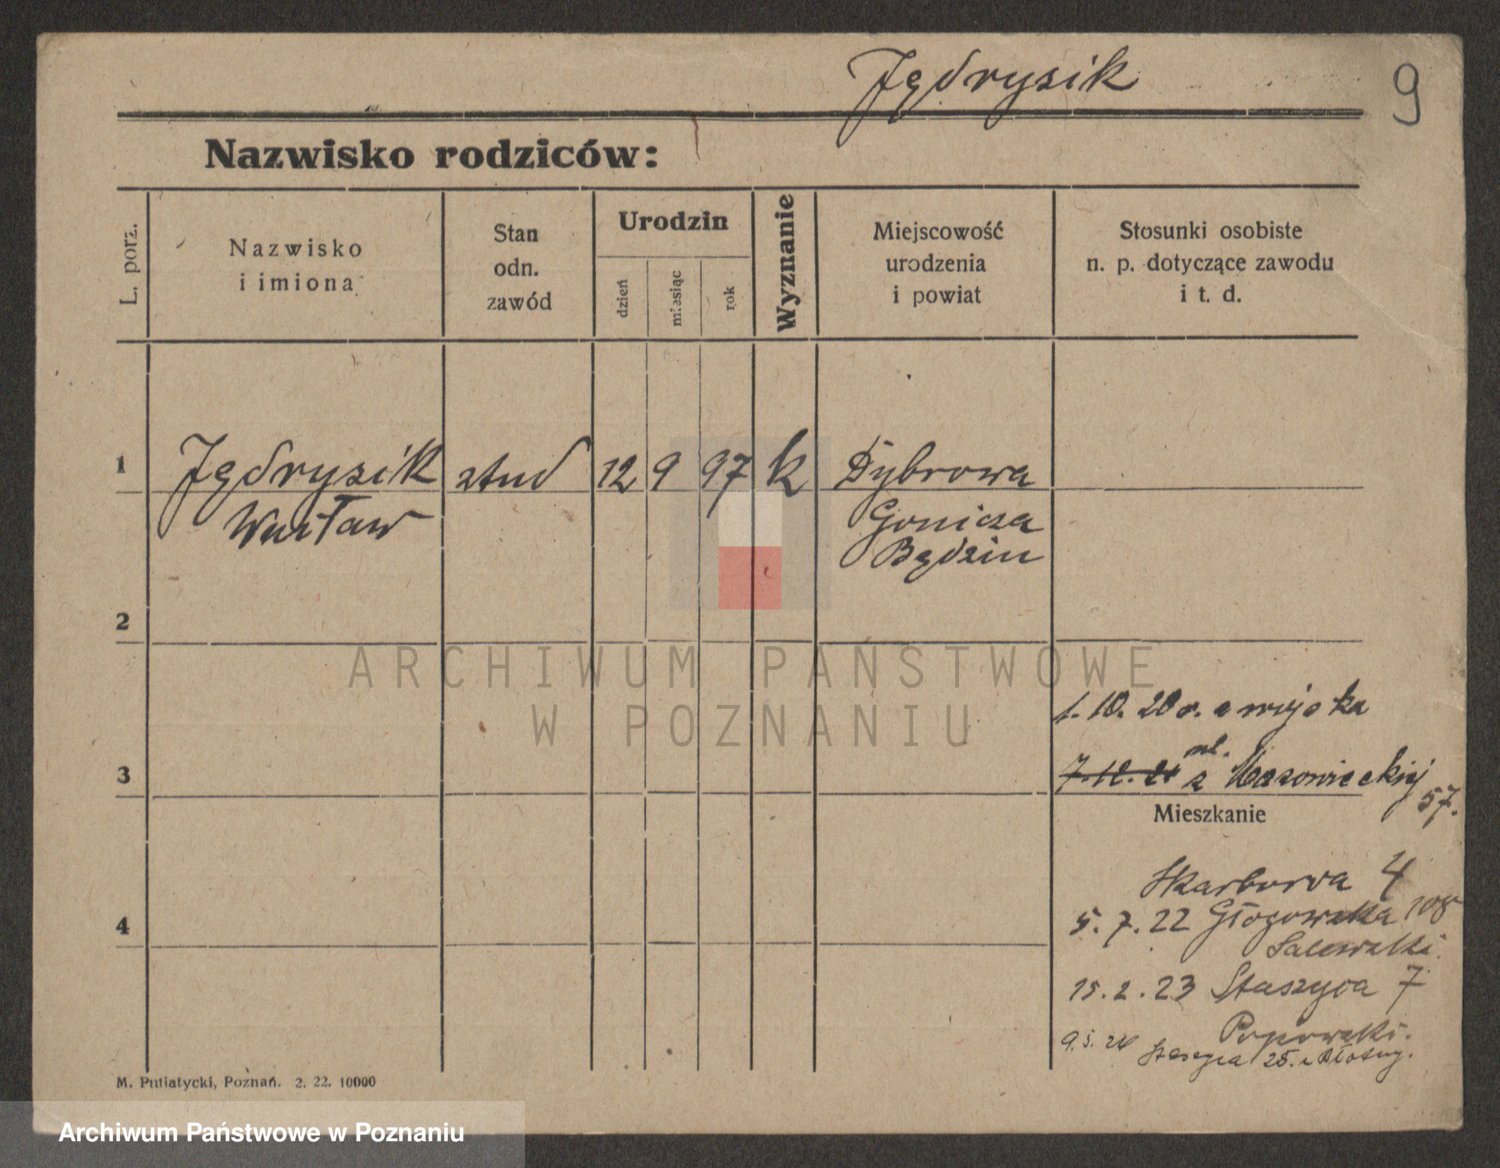 Jędrysik
9
Nazwisko rodziców:
L. porz.
Nazwisko
i imiona
Stan
odn.
zawód
Urodzin
dzień
miesiąc
rok
Wyznanie
Miejscowość
urodzenia
i powiat
Stosunki osobiste
n. p. dotyczące zawodu
i t. d.
1
Jędrysik stud 12 9 97 k Dąbrowa
Gonicza
Będzin
2
ARCHIWUM PAŃSTWOWE
W POZNANIU
1. 10. 20 r. z wojska
3
7. 12. 21 z ul. Mazowieckiej
57.
Mieszkanie
Skarbowa 4
5. 7. 22 Głogowska 108
4
15. 2. 23 Staszyca 7
Popowski.
9. 5. 24 Staszyca 25.
M. Putiatycki, Poznań. 2. 22. 10000
Archiwum Państwowe w Poznaniu